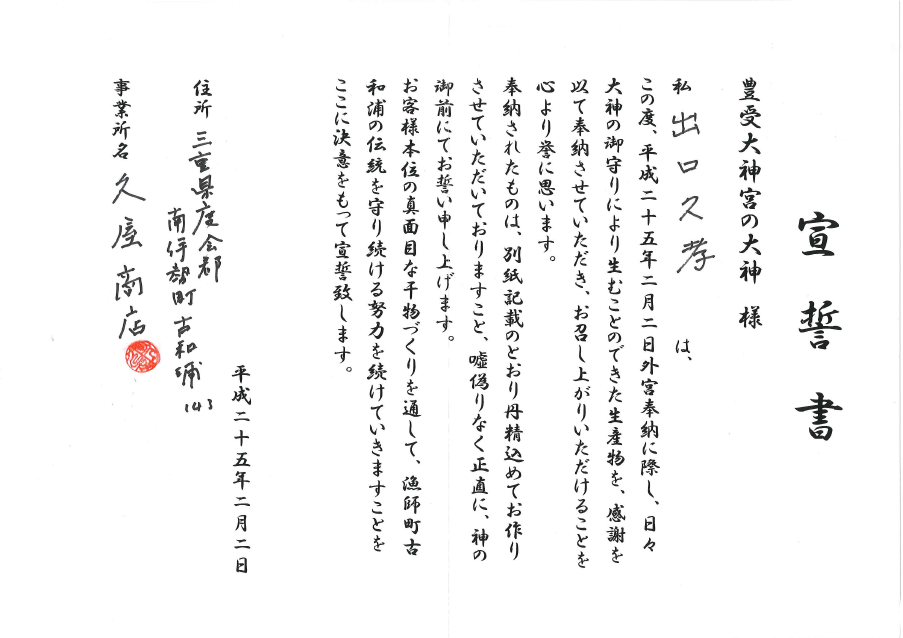 宣誓書
豊受大神宮の大神 様
私 出口久孝 は、
この度、平成二十五年二月二日外宮奉納に際し、日々
大神の御守りにより生むことのできた生産物を、感謝を
以て奉納させていただき、お召し上がりいただけることを
心より誉に思います。
奉納されたものは、別紙記載のとおり丹精込めてお作り
させていただいておりますこと、嘘偽りなく正直に、神の
御前にてお誓い申し上げます。
お客様本位の真面目な干物づくりを通して、漁師町古
和浦の伝統を守り続ける努力を続けていきますことを
ここに決意をもって宣誓致します。
平成二十五年二月二日
住所 三重県度会郡
南伊勢町古和浦143
事業所名 久屋商店